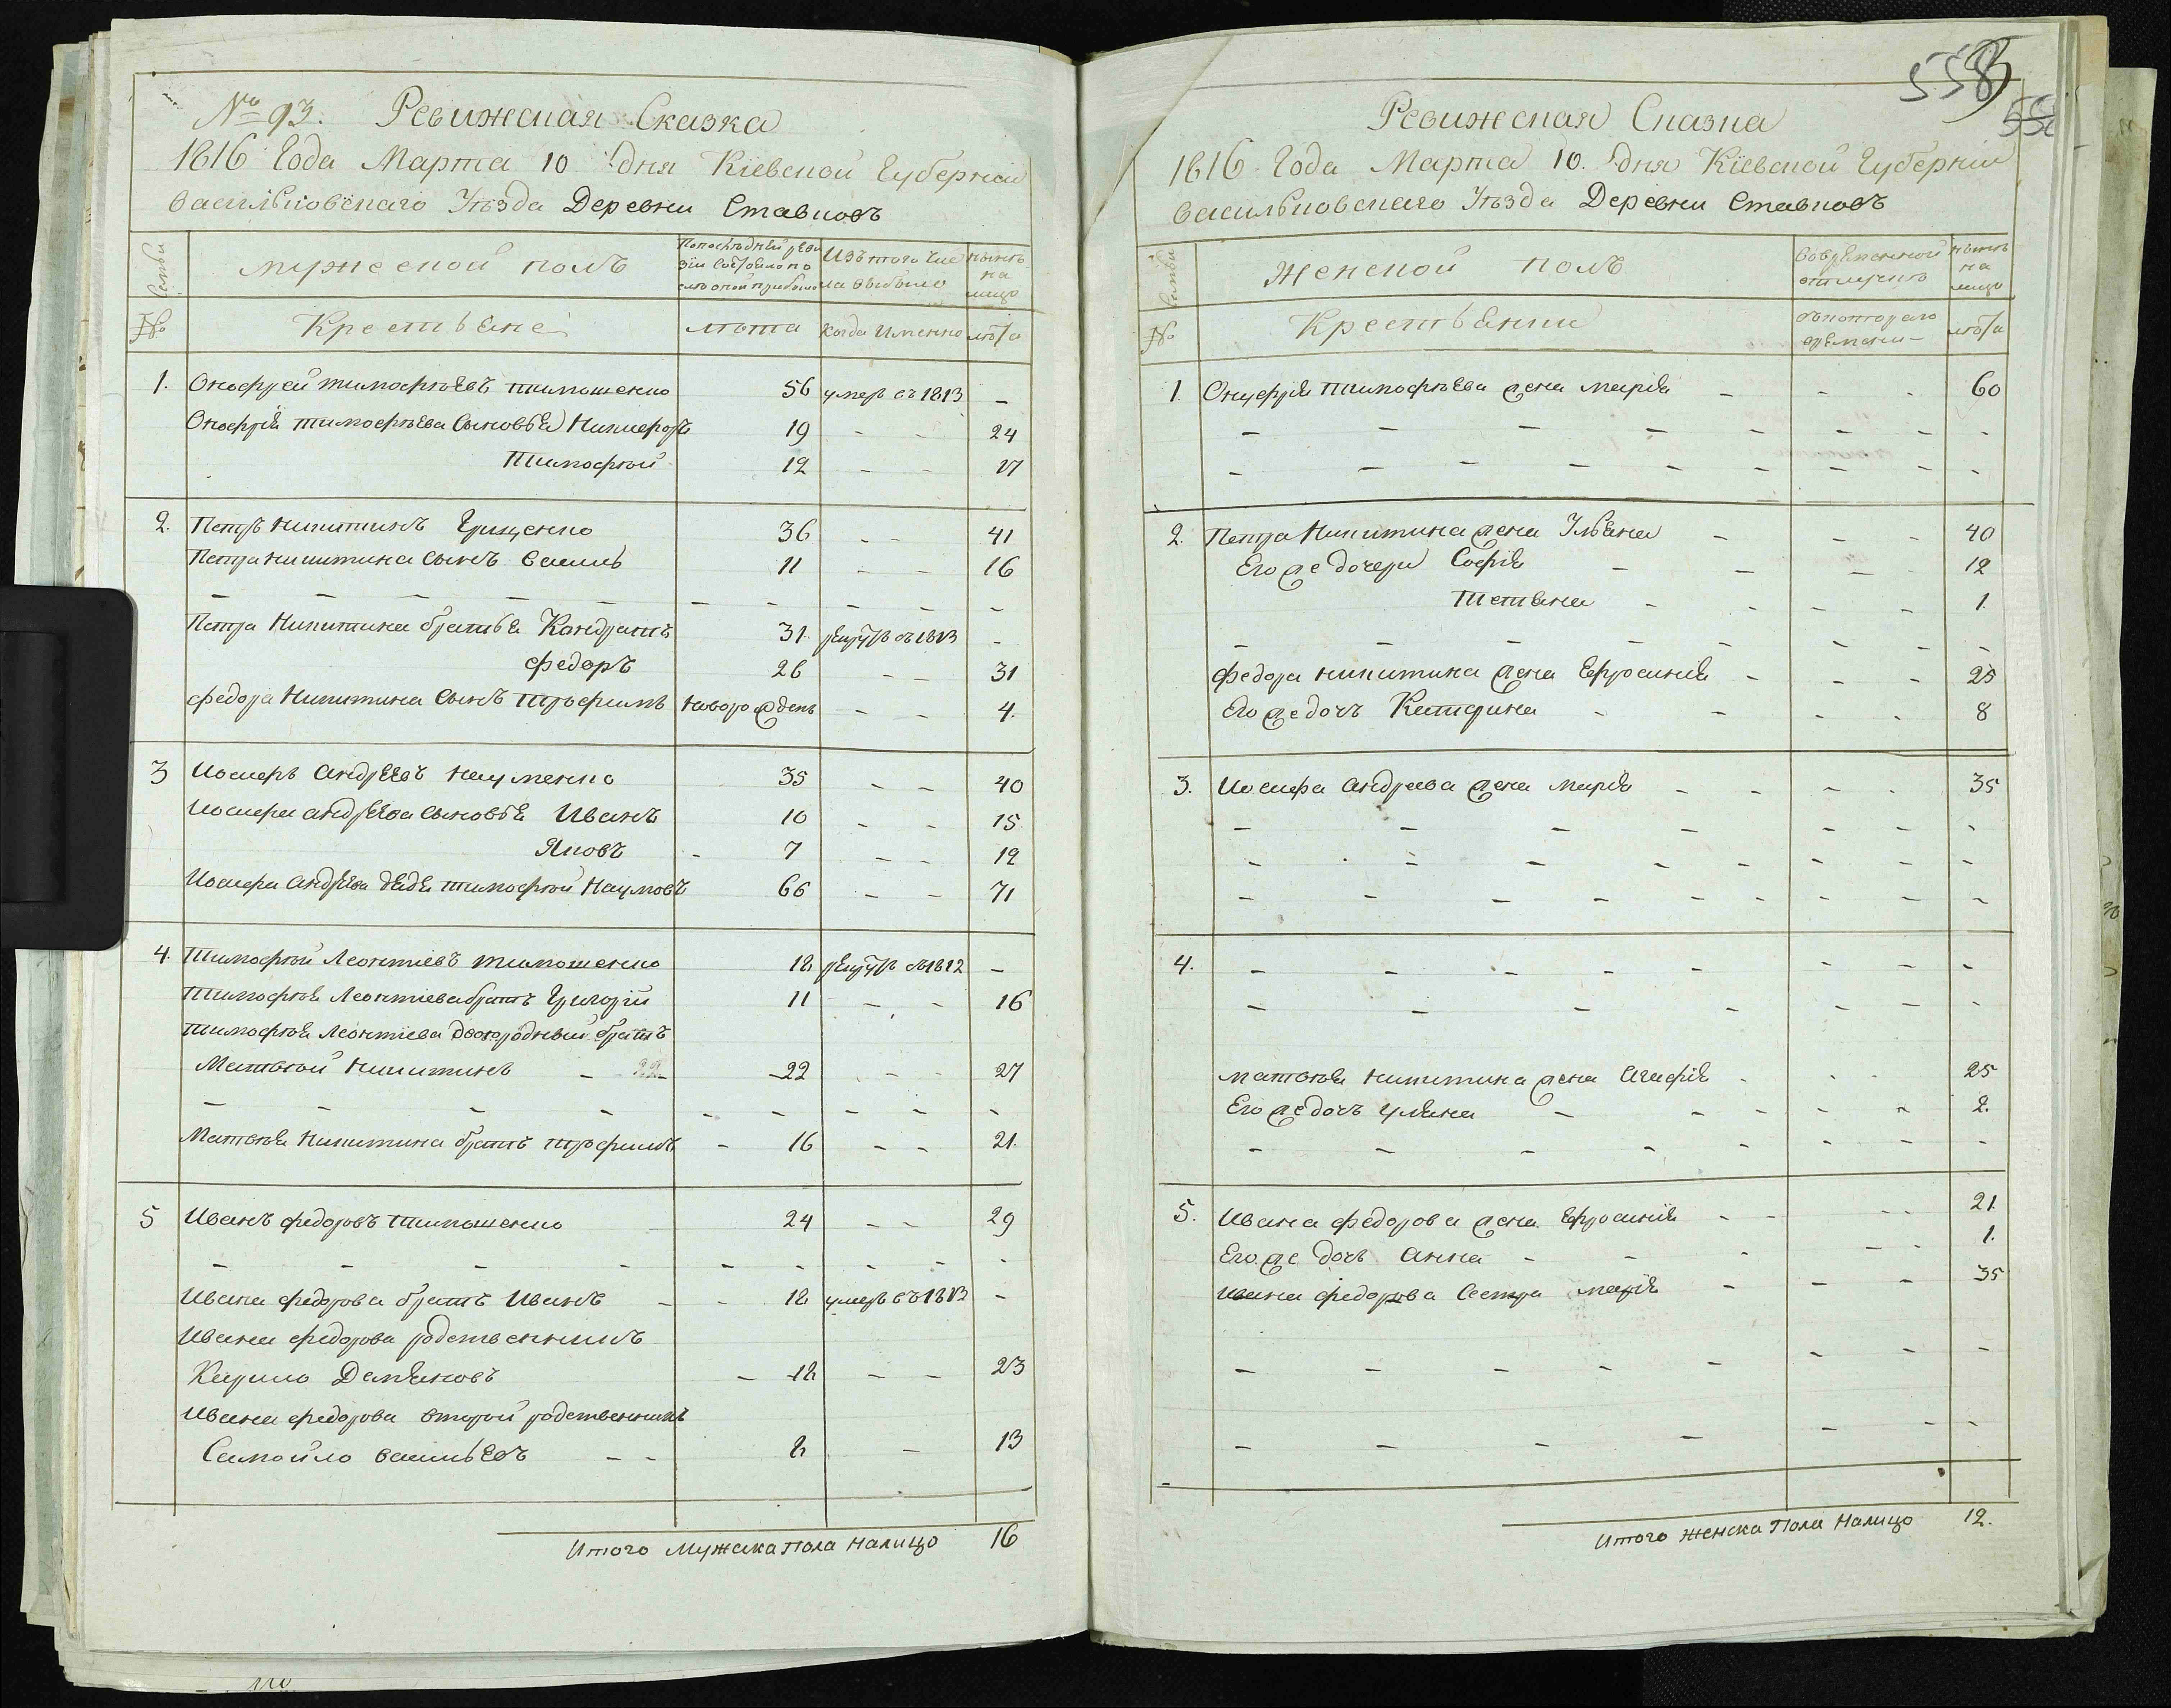 № 93. Ревижская Сказка
1816 Года Марта 10 дня Кіевской Губерніи
Васильковскаго Уѣзда Деревни Ставковъ
Семьи
мужеской полъ
Попослѣдней реви
зіи состояло по
слѣ оной прибыло
Изътого чис
ла выбыло
нынѣ
на
лицо
№
Крестьяне
лѣта
когда именно
лѣта
1. Онофрей тимофѣевъ тимошенко 56 умеръ въ 1813 -
Онофрія тимофѣева сыновья Никифоръ 19 - - 24
Тимофѣй 12 - - 17
2. Петръ никитинъ Грищенко 36 - - 41
Петра никитина сынъ василь 11 - - 16
- - - - - - - - - -
Петра Никитина братья Кондратъ 31 рекрутъ въ 1813 -
федоръ 26 - - 31
федора Никитина сынъ трофимъ новорожденъ - - 4.
3 Иосифъ андрѣевъ науменко 35 - - 40
Иосифа андрѣева сыновья Иванъ 10 - - 15
Яковъ - 7 - - 12
Иосифа андрѣева дядя тимофѣй Наумовъ 66 - - 71
4. Тимофѣй Леонтіевъ тимошенко 18 рекрутъ въ 1812 -
Тимофѣя Леонтіева братъ Григорій 11 - - 16
тимофѣя Леонтіева двоюродный братъ
Матвѣй Никитинъ - 22 - 22 - - 27
- - - - - - - - -
Матвѣя Никитина братъ трофимъ - 16 - - 21.
5 Иванъ федоровъ тимошенко 24 - - 29
- - - - - - - - -
Ивана федорова братъ Иванъ - - 18 умеръ въ 1813 -
Ивана федорова родственникъ
Кирило Демяновъ - 18 - - 23
Ивана федорова второй родственникъ
Самойло васильевъ - - 8 - 13
Итого Мужеска пола налицо 16
558
Ревижская Сказка
1816 Года Марта 10. дня Кіевской Губерніи
Васильковскаго Уѣзда Деревни Ставковъ
Семьи
Женской полъ
Вовременной
отлучкѣ
нынѣ
на
лицо
№
Крестьянки
съкотораго
времени -
лѣта
1 Онуфрія тимофѣева жена марія - - - 60
- - - - - - - -
- - - - - - - - -
2. Петра Никитина жена Ульяна - - - 40
Его же дочери Софія - - - - 12
Тетяна - - - - 1.
- - - - - - - -
федора никитина жена Ефросинія - - - 25
Его же дочь Катерина - - - - 8
3. Иосифа андреева жена марія - - - - 35
- - - - - - -
- - - - - - - - -
- - - - - - - - -
4. - - - - - - - -
- - - - - - -
матвѣя никитина жена агафія - - - 25
Его же дочь уляна - - - - - 2.
- - - - - - - -
5. Ивана федорова жена Ефросинія - - - - 21
Его же дочь анна - - - - - 1.
ивана федорова Сестра марія - - - 35
- - - - - - - -
- - - - - - -
Итого женска Пола Налицо 12.